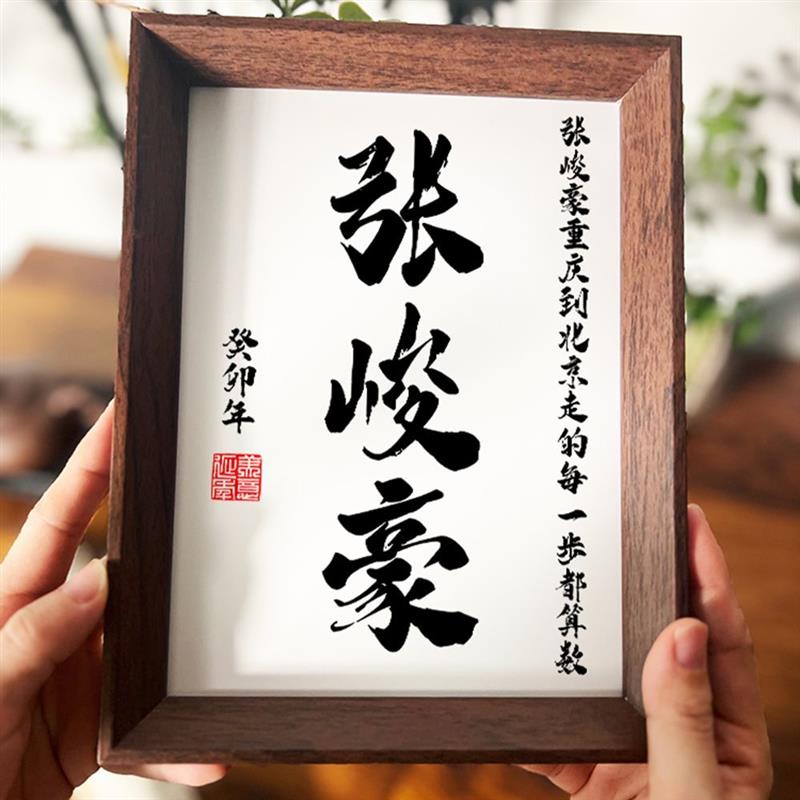 张峻豪重庆到北京走的每一步都算数
张峻豪
癸卯年